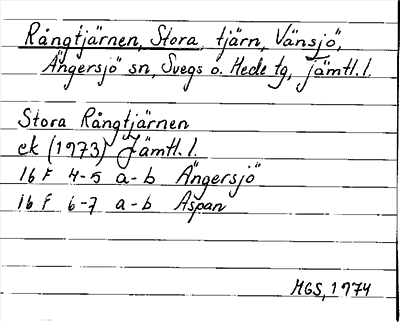 Rångtjärnen, Stora, tjärn, Vänsjö,
Ängersjö sn, Svegs o. Hede tg, Jämtl. l.
Stora Rångtjärnen
ek (1973) Jämtl. l.
16 F 4-5 a-b Ängersjö
16 F 6-7 a-b Aspan
MGS, 1974